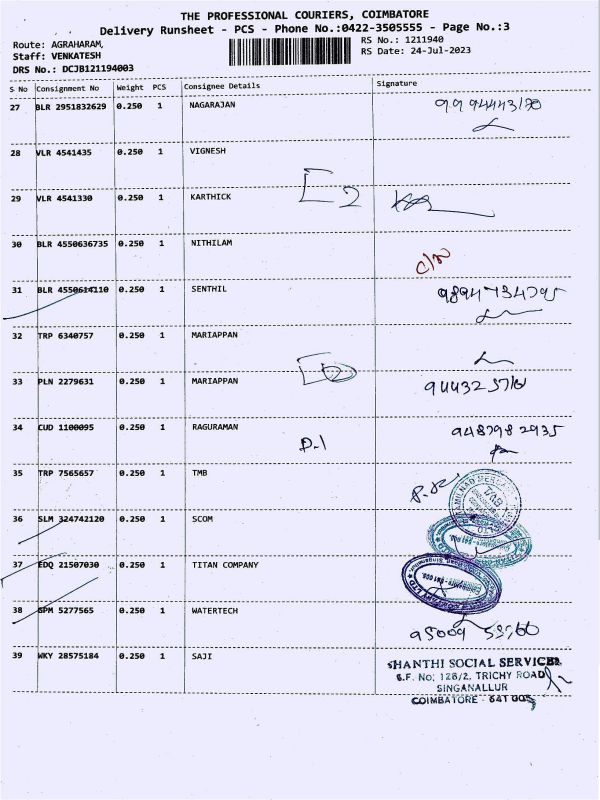 THE PROFESSIONAL COURIERS, COIMBATORE
Delivery Runsheet - PCS - Phone No.:0422-3505555 - Page No.:3
Route: AGRAHARAM,
RS No.: 1211940
Staff: VENKATESH
RS Date: 24-Jul-2023
DRS No.: DCJB121194003
S No Consignment No Weight PCS Consignee Details Signature
27 BLR 2951832629 0.250 1 NAGARAJAN
28 VLR 4541435 0.250 1 VIGNESH
29 VLR 4541330 0.250 1 KARTHICK
2
30 BLR 4550636735 0.250 1 NITHILAM
C/N
31 BLR 4550614110 0.250 1 SENTHIL
32 TRP 6340757 0.250 1 MARIAPPAN
33 PLN 2279631 0.250 1 MARIAPPAN
34 CUD 1100095 0.250 1 RAGURAMAN 9487982935
D.1
35 TRP 7565657 0.250 1 TMB
36 SLM 324742120 0.250 1 SCOM
37 EDQ 21507030 0.250 1 TITAN COMPANY
38 SPM 5277565 0.250 1 WATERTECH
39 WKY 28575184 0.250 1 SAJI
SHANTHI SOCIAL SERVICES
S.F. No: 126/2, TRICHY ROAD
SINGANALLUR
COIMBATORE - 641 005